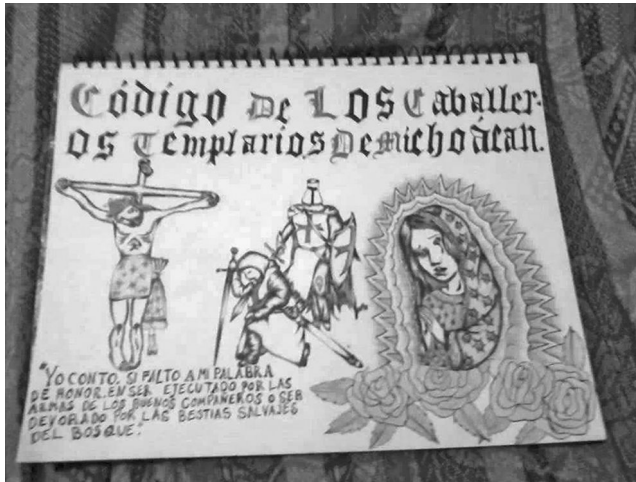 Código De Los Caballer-
os Templarios De Michoácan.
"YO CONTO. SI FALTO A MI PALABRA
DE HONOR. EN SER EJECUTADO POR LAS
ARMAS DE LOS BUENOS COMPAÑEROS O SER
DEVORADO POR LAS BESTIAS SALVAJES
DEL BOSQUE".